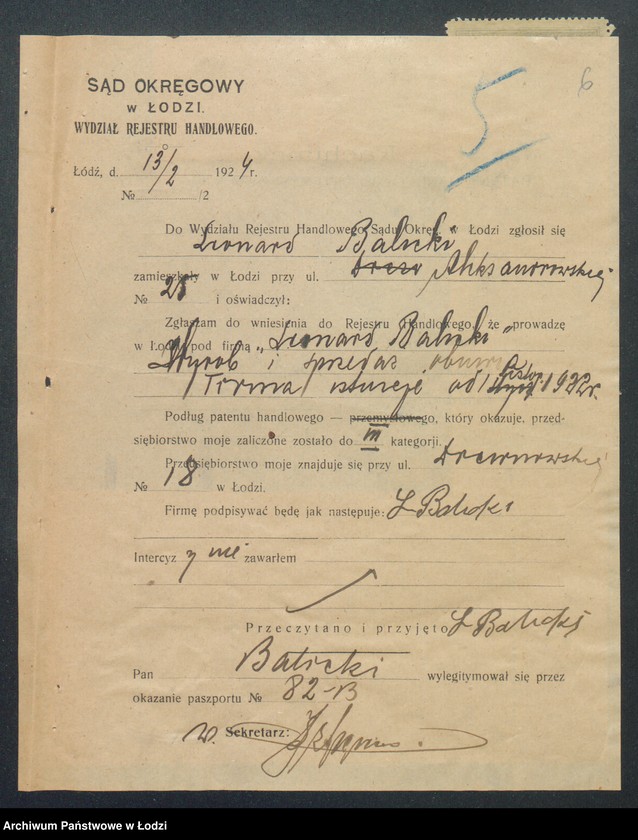 5
6
SĄD OKRĘGOWY
w ŁODZI.
WYDZIAŁ REJESTRU HANDLOWEGO.
Łódź, d. 13/2 1924 r.
№ /2
Do Wydziału Rejestru Handlowego Sądu Okręg. w Łodzi zgłosił się
Leonard Balicki
zamieszkały w Łodzi przy ul. Aleksandrowskiej
№ 25 i oświadczył:
Zgłaszam do wniesienia do Rejestru Handlowego, że prowadzę
w Łodzi pod firmą „Leonard Balicki"
Wyrób i sprzedaż obuwia
Firma istnieje od 1 1922 r.
Podług patentu handlowego — przemysłowego, który okazuję, przed-
siębiorstwo moje zaliczone zostało do III kategorji.
Przedsiębiorstwo moje znajduje się przy ul. Drewnowskiej
№ 18 w Łodzi.
Firmę podpisywać będę jak następuje: L Balicki
Intercyzy nie zawarłem
Przeczytano i przyjęto L Balicki
Pan Balicki wylegitymował się przez
okazanie paszportu № 82-B
w. Sekretarz:
Archiwum Państwowe w Łodzi